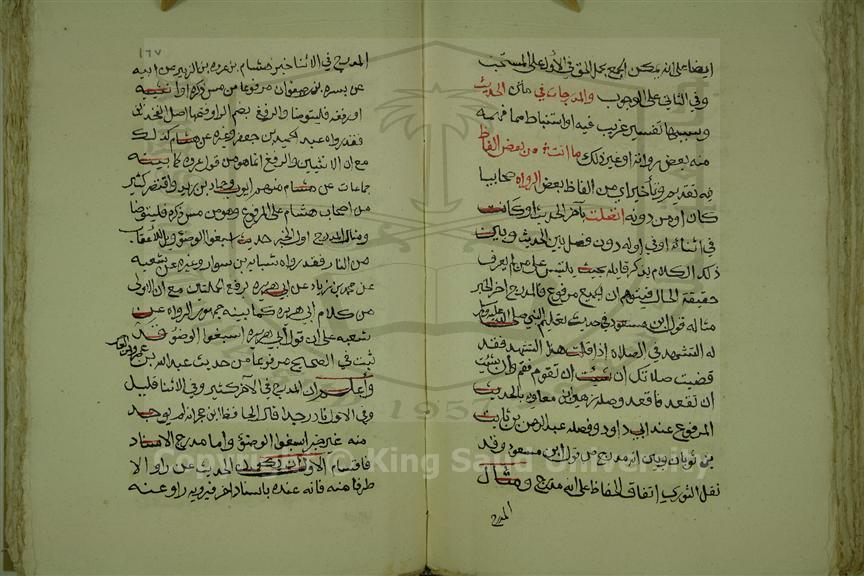 ايضا على انه يمكن الجمع بحمل المتن في الاول على المستحب
وفي الثاني على الوجوب والمدرجات في متن الحديث
وسببها تفسير غريب فيه او استنباط مما فهمه
منه بعض رواته او غير ذلك ما اتت من بعض الفاظ
الرواه صحابيا
كان او من دونه اتصلت بآخر الحديث او كانت
في اثنائه او في اوله دون فصل بين الحديث وبين
ذلك الكلام بذكر قايله بحيث يلتبس على من لم يعرف
حقيقة الحال فيتوهم ان الجميع مرفوع فالمدرج اخر الخبر
مثاله قول ابن مسعود في حديث تعليم النبي صلى الله عليه وسلم
له التشهد في الصلاه اذا قلت هذا التشهد فقد
قضيت صلاتك ان شيت ان تقوم فقم وان شيت
ان تقعد فاقعد وصله زهير ابن معاويه بالحديث
المرفوع عند ابي داود وفصله عبد الرحمن بن ثابت
بن ثوبان وبين انه مدرج من قول ابن مسعود وقد
نقل النووي اتفاق الحفاظ على انه مدرج ومثال
المدرج
١٦٧
المدرج في الاثنا خبر هشام بن عروه بن الزبير عن ابيه
عن بسره بن صفوان مرفوعا من مس ذكره او انثييه
او رفغه فليتوضا والرفغ بضم الرا وفتحها اصل الفخذين
فقد رواه عبد الحميد بن جعفر وغيره عن هشام كذلك
مع ان الانثيين والرفغ انما هو من قول عروه كما بينه
جماعات عن هشام منهم ايوب وحماد بن زيد واقتصر كثير
من اصحاب هشام على المرفوع وهو من مس ذكره فليتوضا
ومثال المدرج اول الخبر حديث اسبغوا الوضو ويل للاعقاب
من النار فقد رواه شبابه بن سوار وغيره عن شعبه
عن محمد بن زياد عن ابي هريره برفع الجملتين مع ان الاولى
من كلام ابي هريره كما بينه جمهور الرواه عن
شعبه على ان قول ابي هريره اسبغوا الوضو قد
ثبت في الصحيح مرفوعا من حديث عبد الله بن
عمرو بن العاص
واعلم ان المدرج في الآخر كثير وفي الاثنا قليل
وفي الاول نادر جدا قال الحافظ ابن حجر انه لم يوجد
منه غير خبر اسبغوا الوضو واما مدرج الاسناد
فاقسام الاول ان يكون الحديث عند راو الا
طرفا منه فانه عنده باسناد اخر فيرويه راو عنه